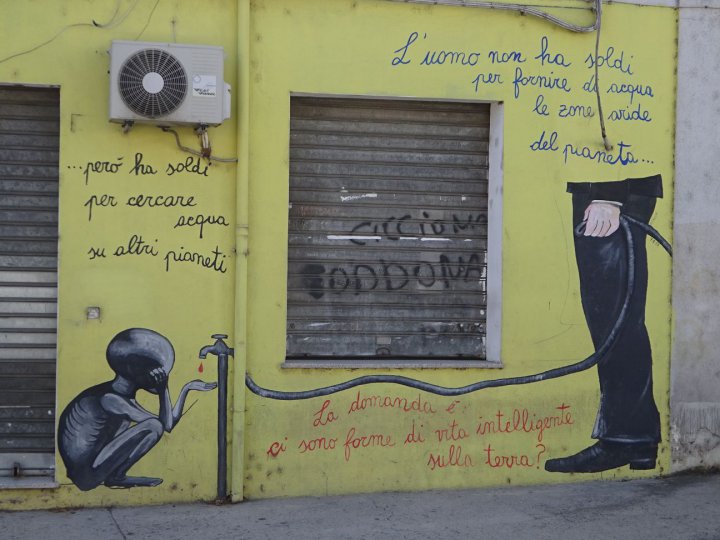 L'uomo non ha soldi
per fornire di acqua
le zone aride
del pianeta...
...però ha soldi
per cercare
acqua
su altri pianeti
La domanda è:
ci sono forme di vita intelligente
sulla terra?